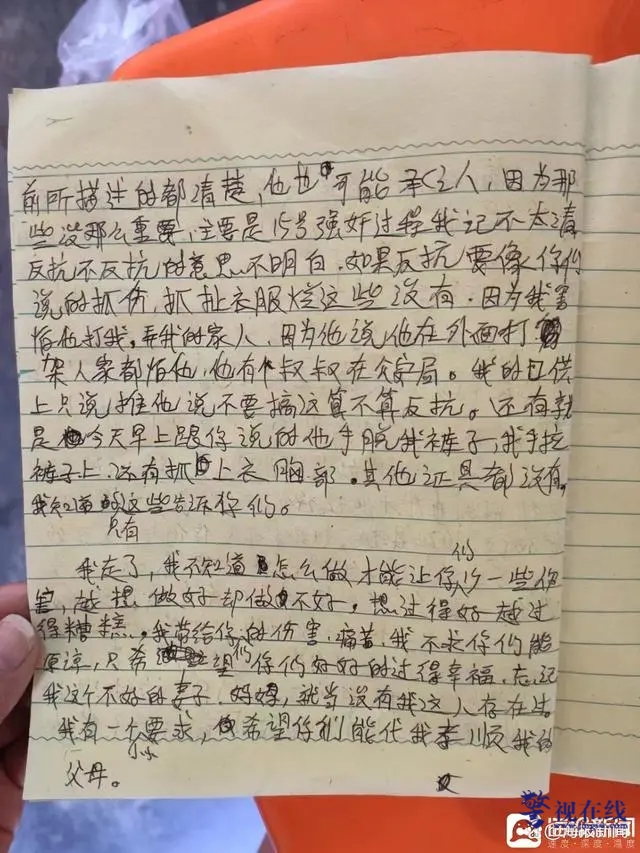 前所描述的都清楚，他也可能承认，因为那
些没那么重要，主要是15号强奸过程我记不太清
反抗不反抗的意思不明白。如果反抗要像你们
说的抓伤，抓扯衣服烂这些没有。因为我害
怕他打我，弄我的家人，因为他说他在外面打
架人家都怕他，他有个叔叔在公安局。我的口供
上只说推他说不要搞这算不算反抗。还有就
是今天早上跟你说的他手脱我裤子，我手拉
裤子上。还有抓上衣胸部。其他证具都没有。
我知道的只有这些告诉你们。
我走了，我不知道怎么做才能让你们少一些伤
害，越想做好却做不好。想过得好越过
得糟糕。我带给你的伤害，痛苦，我不求你们能
原谅，只希你们好好的过得幸福。忘记
我这个不好的妻子，妈妈，就当没有我这人存在过。
我有一个小小要求，希望你们能代我孝顺我的
父母。
警视在线
速度·深度·温度